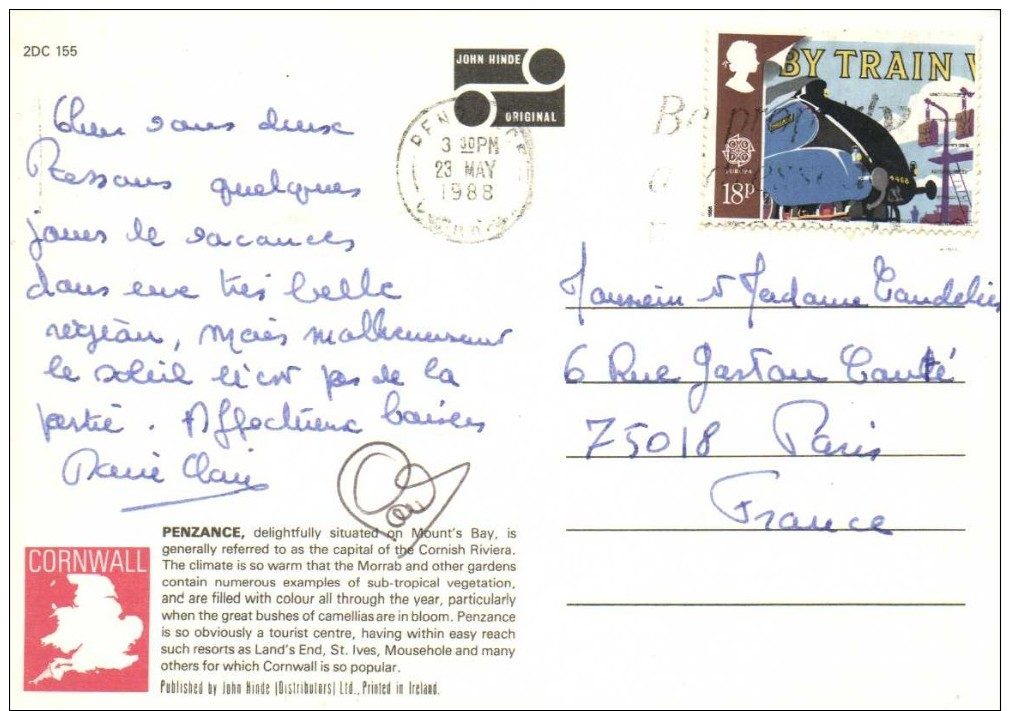 2DC 155
JOHN HINDE
ORIGINAL
PENZANCE
3 30PM
23 MAY
1988
CORNWALL
BY TRAIN
EUROPA
18p
4468
Be properly
Chers vous deux
Passons quelques
jours de vacances
dans une très belle
région, mais malheureuseur
le soleil n'est pas de la
partie. Affectueux baisers
Marie Claire
Monsieur et Madame
6 Rue Gaston
75018 Paris
France
PENZANCE, delightfully situated on Mount's Bay, is
generally referred to as the capital of the Cornish Riviera.
The climate is so warm that the Morrab and other gardens
contain numerous examples of sub-tropical vegetation,
and are filled with colour all through the year, particularly
when the great bushes of camellias are in bloom. Penzance
is so obviously a tourist centre, having within easy reach
such resorts as Land's End, St. Ives, Mousehole and many
others for which Cornwall is so popular.
Published by John Hinde (Distributors) Ltd., Printed in Ireland.
CORNWALL